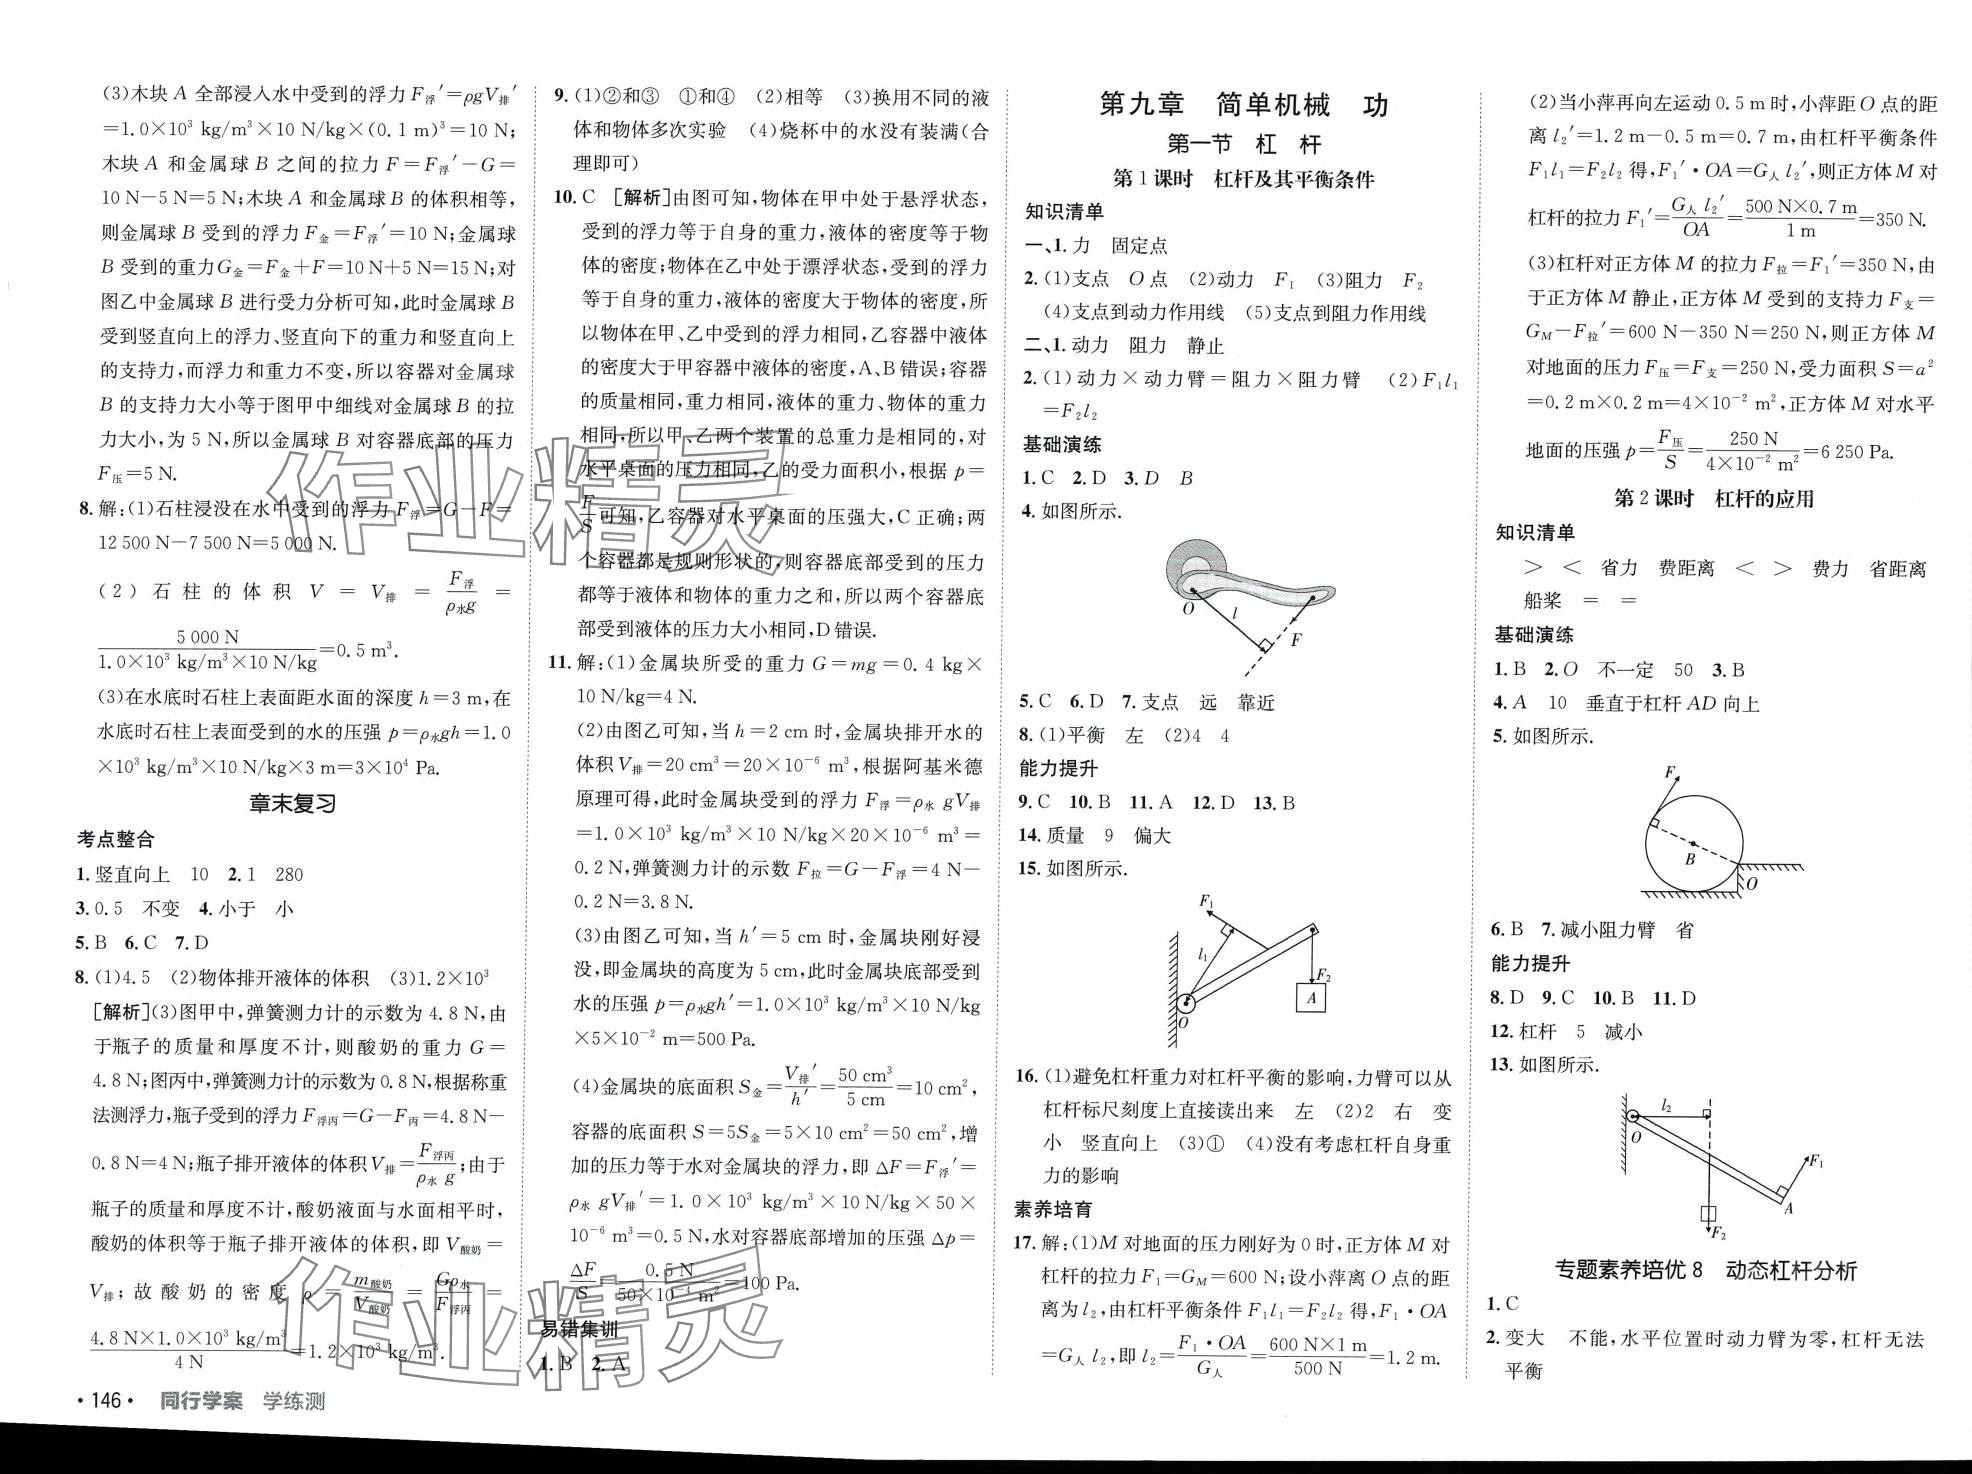 (3)木块 A 全部浸入水中受到的浮力 F浮′=ρgV排′
=1.0×10³ kg/m³×10 N/kg×(0.1 m)³=10 N;
木块 A 和金属球 B 之间的拉力 F=F浮′-G=
10 N-5 N=5 N;木块 A 和金属球 B 的体积相等,
则金属球 B 受到的浮力 F金=F浮′=10 N;金属球
B 受到的重力G金=F金+F=10 N+5 N=15 N;对
图乙中金属球 B 进行受力分析可知,此时金属球 B
受到竖直向上的浮力、竖直向下的重力和竖直向上
的支持力,而浮力和重力不变,所以容器对金属球
B 的支持力大小等于图甲中细线对金属球 B 的拉
力大小,为 5 N,所以金属球 B 对容器底部的压力
F压=5 N.
8. 解:(1)石柱浸没在水中受到的浮力 F浮=G-F=
12 500 N-7 500 N=5 000 N.
(2) 石 柱 的 体 积 V = V排 = F浮/ρ水g =
5 000 N/1.0×10³ kg/m³×10 N/kg=0.5 m³.
(3)在水底时石柱上表面距水面的深度 h=3 m,在
水底时石柱上表面受到的水的压强 p=ρ水gh=1.0
×10³ kg/m³×10 N/kg×3 m=3×10⁴ Pa.
章末复习
考点整合
1. 竖直向上 10 2. 1 280
3. 0.5 不变 4. 小于 小
5. B 6. C 7. D
8. (1)4.5 (2)物体排开液体的体积 (3)1.2×10³
[解析](3)图甲中,弹簧测力计的示数为 4.8 N,由
于瓶子的质量和厚度不计,则酸奶的重力 G=
4.8 N;图丙中,弹簧测力计的示数为 0.8 N,根据称重
法测浮力,瓶子受到的浮力 F浮丙=G-F丙=4.8 N-
0.8 N=4 N;瓶子排开液体的体积V排=F浮丙/ρ水 g;由于
瓶子的质量和厚度不计,酸奶液面与水面相平时,
酸奶的体积等于瓶子排开液体的体积,即 V酸奶=
V排;故 酸 奶 的 密 度 ρ = m酸奶/V酸奶 = Gρ水/F浮丙 =
4.8 N×1.0×10³ kg/m³/4 N=1.2×10³ kg/m³.
· 146 · 同行学案 学练测
9. (1)②和③ ①和④ (2)相等 (3)换用不同的液
体和物体多次实验 (4)烧杯中的水没有装满(合
理即可)
10. C [解析]由图可知,物体在甲中处于悬浮状态,
受到的浮力等于自身的重力,液体的密度等于物
体的密度;物体在乙中处于漂浮状态,受到的浮力
等于自身的重力,液体的密度大于物体的密度,所
以物体在甲、乙中受到的浮力相同,乙容器中液体
的密度大于甲容器中液体的密度,A、B 错误;容器
的质量相同,重力相同,液体的重力、物体的重力
相同,所以甲、乙两个装置的总重力是相同的,对
水平桌面的压力相同,乙的受力面积小,根据 p=
F/S可知,乙容器对水平桌面的压强大,C 正确;两
个容器都是规则形状的,则容器底部受到的压力
都等于液体和物体的重力之和,所以两个容器底
部受到液体的压力大小相同,D 错误.
11. 解:(1)金属块所受的重力 G=mg=0.4 kg×
10 N/kg=4 N.
(2)由图乙可知,当 h=2 cm 时,金属块排开水的
体积 V排=20 cm³=20×10⁻⁶ m³,根据阿基米德
原理可得,此时金属块受到的浮力 F浮=ρ水 gV排
=1.0×10³ kg/m³×10 N/kg×20×10⁻⁶ m³=
0.2 N,弹簧测力计的示数 F拉=G-F浮=4 N-
0.2 N=3.8 N.
(3)由图乙可知,当 h′=5 cm 时,金属块刚好浸
没,即金属块的高度为 5 cm,此时金属块底部受到
水的压强 p=ρ水gh′=1.0×10³ kg/m³×10 N/kg
×5×10⁻² m=500 Pa.
(4)金属块的底面积 S金=V排′/h′=50 cm³/5 cm=10 cm²,
容器的底面积 S=5S金=5×10 cm²=50 cm²,增
加的压力等于水对金属块的浮力,即 ΔF=F浮′=
ρ水 gV排′=1.0×10³ kg/m³×10 N/kg×50×
10⁻⁶ m³=0.5 N,水对容器底部增加的压强 Δp=
ΔF/S=0.5 N/50×10⁻⁴ m²=100 Pa.
易错集训
1. B 2. A
第九章 简单机械 功
第一节 杠 杆
第 1 课时 杠杆及其平衡条件
知识清单
一、1. 力 固定点
2. (1)支点 O 点 (2)动力 F₁ (3)阻力 F₂
(4)支点到动力作用线 (5)支点到阻力作用线
二、1. 动力 阻力 静止
2. (1)动力×动力臂=阻力×阻力臂 (2)F₁l₁
=F₂l₂
基础演练
1. C 2. D 3. D B
4. 如图所示.
O l F
5. C 6. D 7. 支点 远 靠近
8. (1)平衡 左 (2)4 4
能力提升
9. C 10. B 11. A 12. D 13. B
14. 质量 9 偏大
15. 如图所示.
F₁
l₁
F₂
A
O
16. (1)避免杠杆重力对杠杆平衡的影响,力臂可以从
杠杆标尺刻度上直接读出来 左 (2)2 右 变
小 竖直向上 (3)① (4)没有考虑杠杆自身重
力的影响
素养培育
17. 解:(1)M 对地面的压力刚好为 0 时,正方体 M 对
杠杆的拉力 F₁=GM=600 N;设小萍离 O 点的距
离为 l₂,由杠杆平衡条件 F₁l₁=F₂l₂ 得,F₁·OA
=G人 l₂,即 l₂=F₁·OA/G人=600 N×1 m/500 N=1.2 m.
(2)当小萍再向左运动 0.5 m 时,小萍距 O 点的距
离 l₂′=1.2 m-0.5 m=0.7 m,由杠杆平衡条件
F₁l₁=F₂l₂ 得,F₁′·OA=G人 l₂′,则正方体 M 对
杠杆的拉力 F₁′=G人 l₂′/OA=500 N×0.7 m/1 m=350 N.
(3)杠杆对正方体 M 的拉力 F拉=F₁′=350 N,由
于正方体 M 静止,正方体 M 受到的支持力 F支=
GM-F拉′=600 N-350 N=250 N,则正方体 M
对地面的压力 F压=F支=250 N,受力面积 S=a²
=0.2 m×0.2 m=4×10⁻² m²,正方体 M 对水平
地面的压强 p=F压/S=250 N/4×10⁻² m²=6 250 Pa.
第 2 课时 杠杆的应用
知识清单
> < 省力 费距离 < > 费力 省距离
船桨 = =
基础演练
1. B 2. O 不一定 50 3. B
4. A 10 垂直于杠杆 AD 向上
5. 如图所示.
F
B
O
6. B 7. 减小阻力臂 省
能力提升
8. D 9. C 10. B 11. D
12. 杠杆 5 减小
13. 如图所示.
l₂
O
F₁
A
F₂
专题素养培优 8 动态杠杆分析
1. C
2. 变大 不能,水平位置时动力臂为零,杠杆无法
平衡
作业精灵
作业精灵